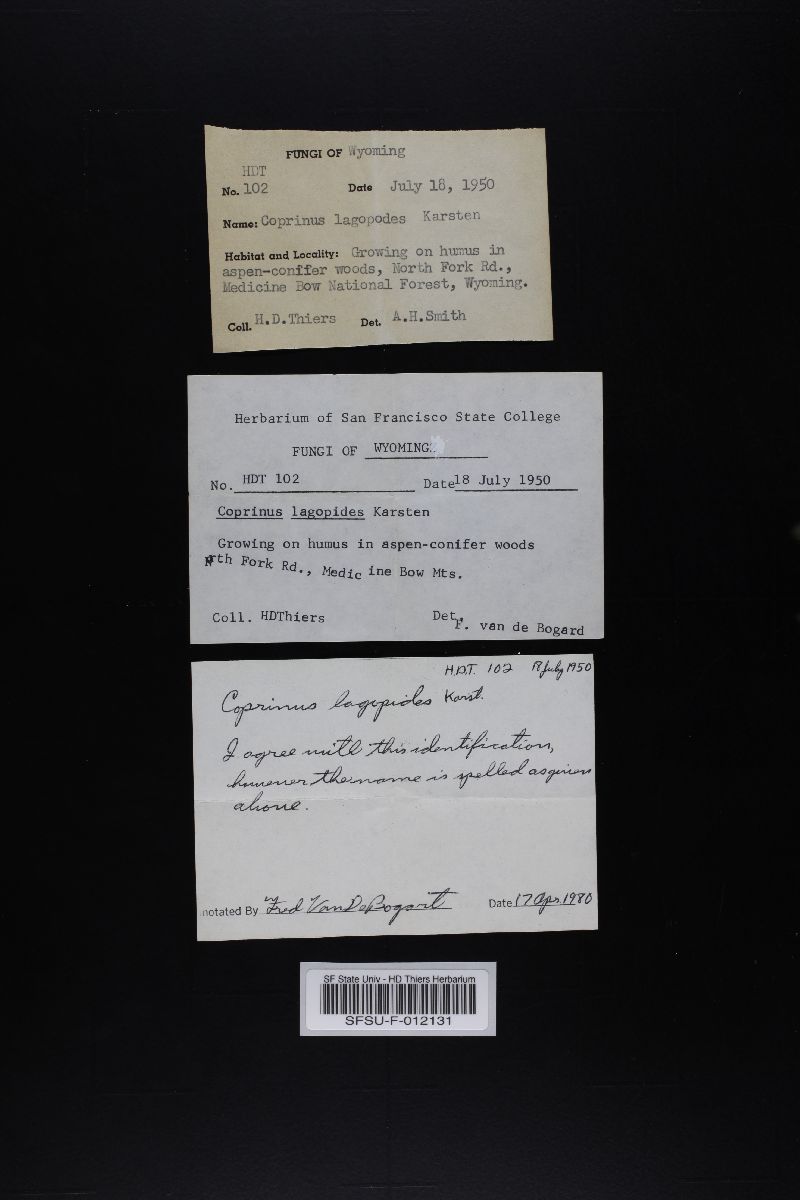 FUNGI OF Wyoming
HDT
No. 102 Date July 18, 1950
Name: Coprinus lagopodes Karsten
Habitat and Locality: Growing on humus in
aspen-conifer woods, North Fork Rd.,
Medicine Bow National Forest, Wyoming.
Coll. H.D.Thiers Det. A.H.Smith
Herbarium of San Francisco State College
FUNGI OF WYOMING
No. HDT 102 Date 18 July 1950
Coprinus lagopides Karsten
Growing on humus in aspen-conifer woods
Nrth Fork Rd., Medicine Bow Mts.
Coll. HDThiers Det. F. van de Bogard
H.D.T. 102 18 July 1950
Coprinus lagopides Karst.
I agree with this identification,
however the name is spelled as given
above.
notated By Fred Van De Bogart Date 17 Apr. 1980
SF State Univ - HD Thiers Herbarium
SFSU-F-012131